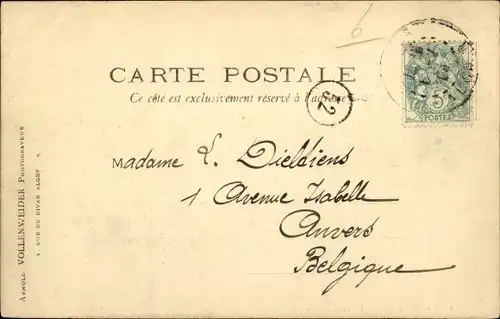 6
CARTE POSTALE
Ce côté est exclusivement réservé à l'adresse
52
5
POSTES
Madame L. Dieldiens
1 Avenue Isabelle
Anvers
Belgique
Arnold VOLLENWEIDER Photograveur
4, RUE DU DIVAN ALGER